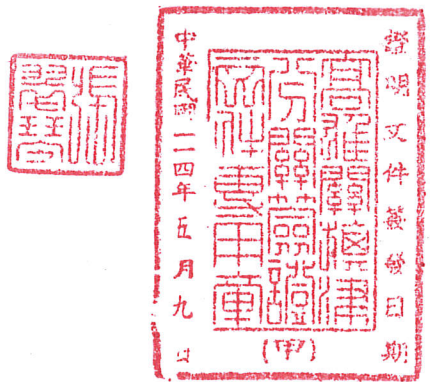 證明文件簽發日期
高雄關旗津
分關簽證
文件專用章
(甲)
中華民國一一四年五月九日